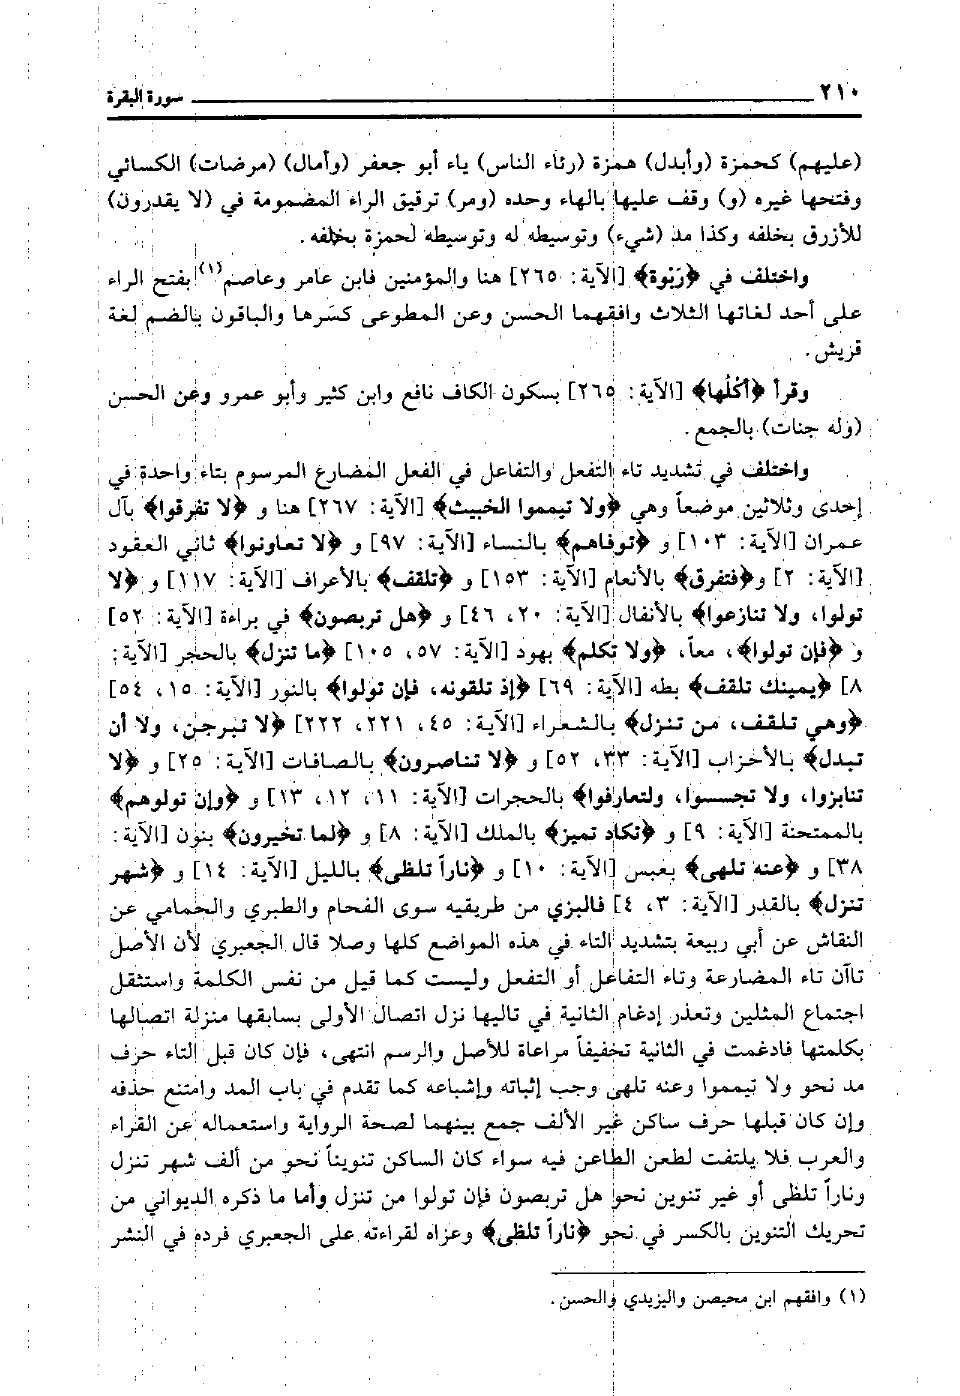 ٢١٠ سورة البقرة
(عليهم) كحمزة (وأبدل) همزة (رئاء الناس) ياء أبو جعفر (وأمال) (مرضات) الكسائي
وفتحها غيره (و) وقف عليها بالهاء وحده (ومر) ترقيق الراء المضمومة في (لا يقدرون)
للأزرق بخلفه وكذا مد (شيء) وتوسيطه له وتوسيطه لحمزة بخلفه.
واختلف في ﴿رَبْوة﴾ [الآية: ٢٦٥] هنا والمؤمنين فابن عامر وعاصم(١) بفتح الراء
على أحد لغاتها الثلاث وافقهما الحسن وعن المطوعى كسرها والباقون بالضم لغة
قريش.
وقرأ ﴿أُكْلُها﴾ [الآية: ٢٦٥] بسكون الكاف نافع وابن كثير وأبو عمرو وعن الحسن
(وله جنات) بالجمع.
واختلف في تشديد تاء التفعل والتفاعل في الفعل المضارع المرسوم بتاء واحدة في
إحدى وثلاثين موضعاً وهي ﴿ولا تيمموا الخبيث﴾ [الآية: ٢٦٧] هنا و ﴿لا تفرقوا﴾ بآل
عمران [الآية: ١٠٣] و ﴿توفاهم﴾ بالنساء [الآية: ٩٧] و ﴿لا تعاونوا﴾ ثاني العقود
[الآية: ٢] و﴿فتفرق﴾ بالأنعام [الآية: ١٥٣] و ﴿تلقف﴾ بالأعراف [الآية: ١١٧] و ﴿لا
تولوا، ولا تنازعوا﴾ بالأنفال [الآية: ٢٠، ٤٦] و ﴿هل تربصون﴾ في براءة [الآية: ٥٢]
و ﴿فإن تولوا﴾، معاً، ﴿ولا تكلم﴾ بهود [الآية: ٥٧، ١٠٥] ﴿ما تنزل﴾ بالحجر [الآية:
٨] ﴿يمينك تلقف﴾ بطه [الآية: ٦٩] ﴿إذ تلقونه، فإن تولوا﴾ بالنور [الآية: ١٥، ٥٤]
﴿وهي تلقف، من تنزل﴾ بالشعراء [الآية: ٤٥، ٢٢١، ٢٢٢] ﴿لا تبرجن، ولا أن
تبدل﴾ بالأحزاب [الآية: ٣٣، ٥٢] و ﴿لا تناصرون﴾ بالصافات [الآية: ٢٥] و ﴿لا
تنابزوا، ولا تجسسوا، ولتعارفوا﴾ بالحجرات [الآية: ١١، ١٢، ١٣] و ﴿وإن تولوهم﴾
بالممتحنة [الآية: ٩] و ﴿تكاد تميز﴾ بالملك [الآية: ٨] و ﴿لما تخيرون﴾ بنون [الآية:
٣٨] و ﴿عنه تلهى﴾ بعبس [الآية: ١٠] و ﴿ناراً تلظى﴾ بالليل [الآية: ١٤] و ﴿شهر
تنزل﴾ بالقدر [الآية: ٣، ٤] فالبزي من طريقيه سوى الفحام والطبري والحمامي عن
النقاش عن أبي ربيعة بتشديد التاء في هذه المواضع كلها وصلا قال الجعبري لأن الأصل
تاآن تاء المضارعة وتاء التفاعل أو التفعل وليست كما قيل من نفس الكلمة واستثقل
اجتماع المثلين وتعذر إدغام الثانية في تاليها نزل اتصال الأولى بسابقها منزلة اتصالها
بكلمتها فادغمت في الثانية تخفيفاً مراعاة للأصل والرسم انتهى، فإن كان قبل التاء حرف
مد نحو ولا تيمموا وعنه تلهى وجب إثباته وإشباعه كما تقدم في باب المد وامتنع حذفه
وإن كان قبلها حرف ساكن غير الألف جمع بينهما لصحة الرواية واستعماله عن القراء
والعرب فلا يلتفت لطعن الطاعن فيه سواء كان الساكن تنويناً نحو من ألف شهر تنزل
وناراً تلظى أو غير تنوين نحو هل تربصون فإن تولوا من تنزل وأما ما ذكره الديواني من
تحريك التنوين بالكسر في نحو ﴿ناراً تلظى﴾ وعزاه لقراءته على الجعبري فرده في النشر
(١) وافقهم ابن محيصن واليزيدي والحسن.